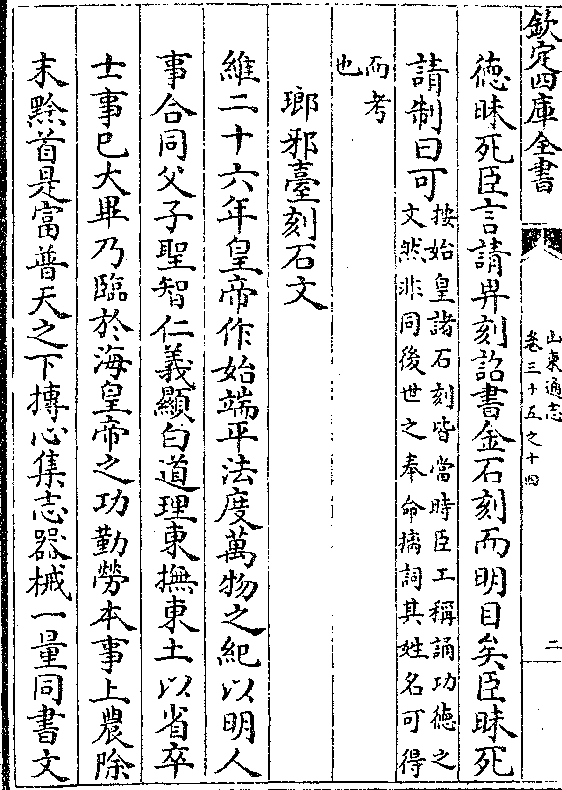 欽定四庫全書
山東通志
卷三十五之十四
二
徳昧死臣言請具刻詔書金石刻而明白矣臣昧死
請制曰可
按始皇諸石刻皆當時臣工稱誦功徳之
文然非同後世之奉命摛詞其姓名可得
而考
也
瑯邪臺刻石文
維二十六年皇帝作始端平法度萬物之紀以明人
事合同父子聖智仁義顯白道理東撫東土以省卒
士事已大畢乃臨於海皇帝之功勤勞本事上農除
末黔首是富普天之下摶心集志器械一量同書文